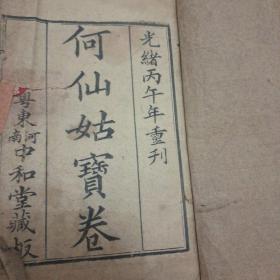 光緒丙午年重刊
何仙姑寶卷
粵東河南中和堂藏板